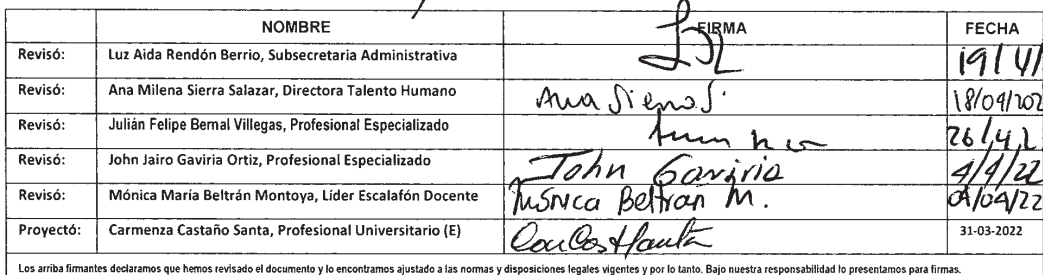 NOMBRE FIRMA FECHA
Revisó: Luz Aida Rendón Berrio, Subsecretaria Administrativa 19/4/
Revisó: Ana Milena Sierra Salazar, Directora Talento Humano Ana Sierra S. 18/04/202
Revisó: Julián Felipe Bernal Villegas, Profesional Especializado 26/4/2
Revisó: John Jairo Gaviria Ortiz, Profesional Especializado John Gaviria 4/4/22
Revisó: Mónica María Beltrán Montoya, Líder Escalafón Docente Mónica Beltran M. 04/04/22
Proyectó: Carmenza Castaño Santa, Profesional Universitario (E) 31-03-2022
Los arriba firmantes declaramos que hemos revisado el documento y lo encontramos ajustado a las normas y disposiciones legales vigentes y por lo tanto. Bajo nuestra responsabilidad lo presentamos para firmas.